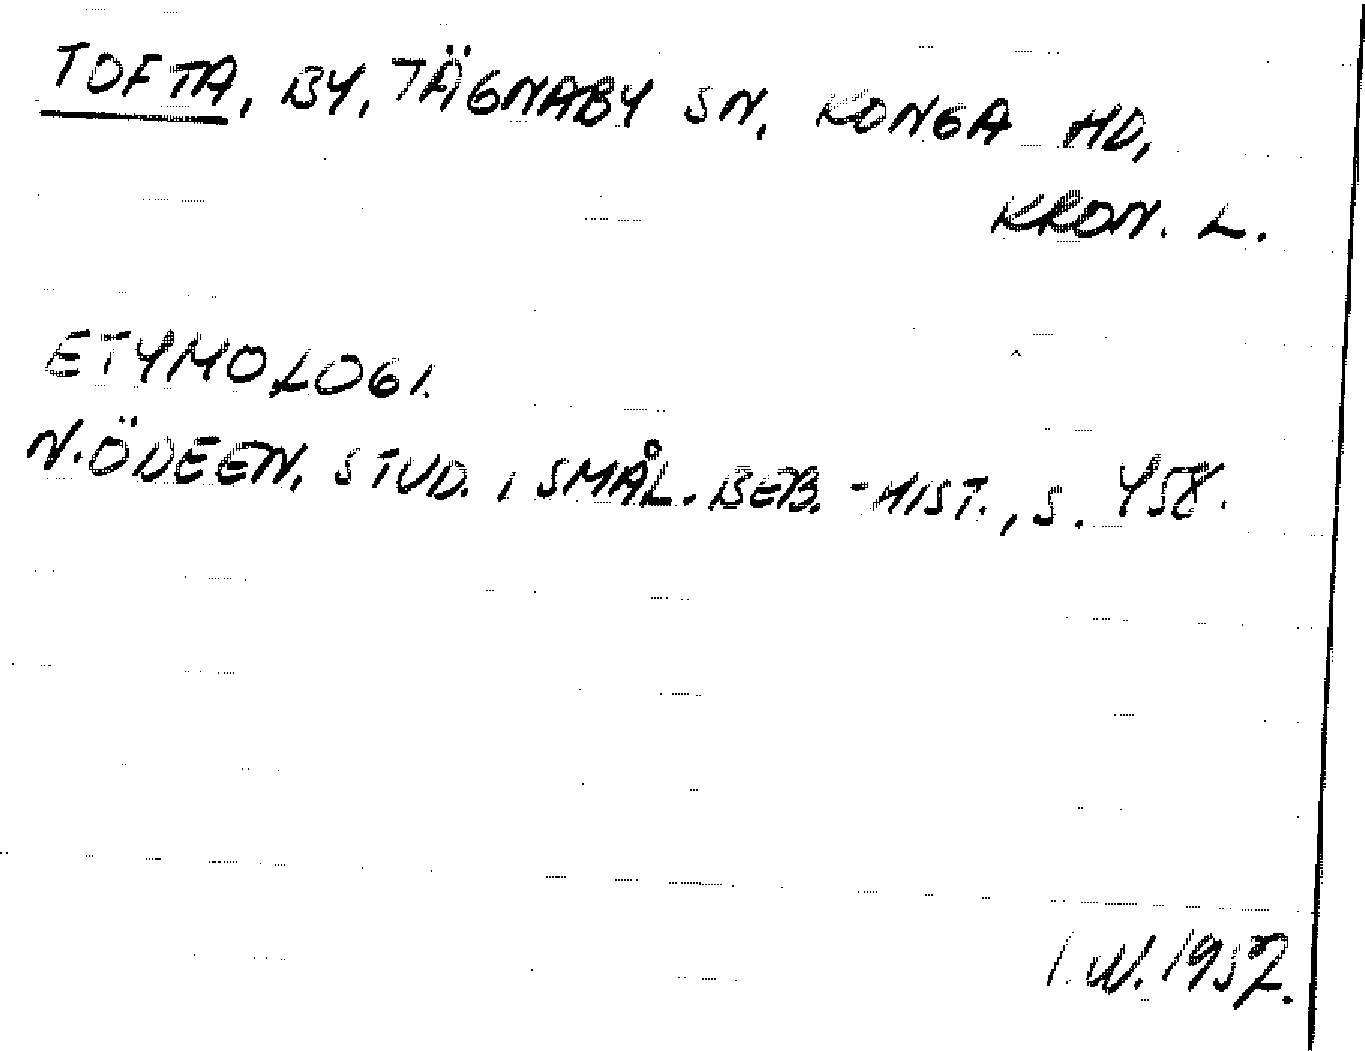 TOFTA, BY, TÄGNABY SN, KONGA HD,
KRON. L.
ETYMOLOGI.
N. ÖDEEN, STUD. I SMÅL. BEB.-HIST., S. 458.
I.W. 1937.